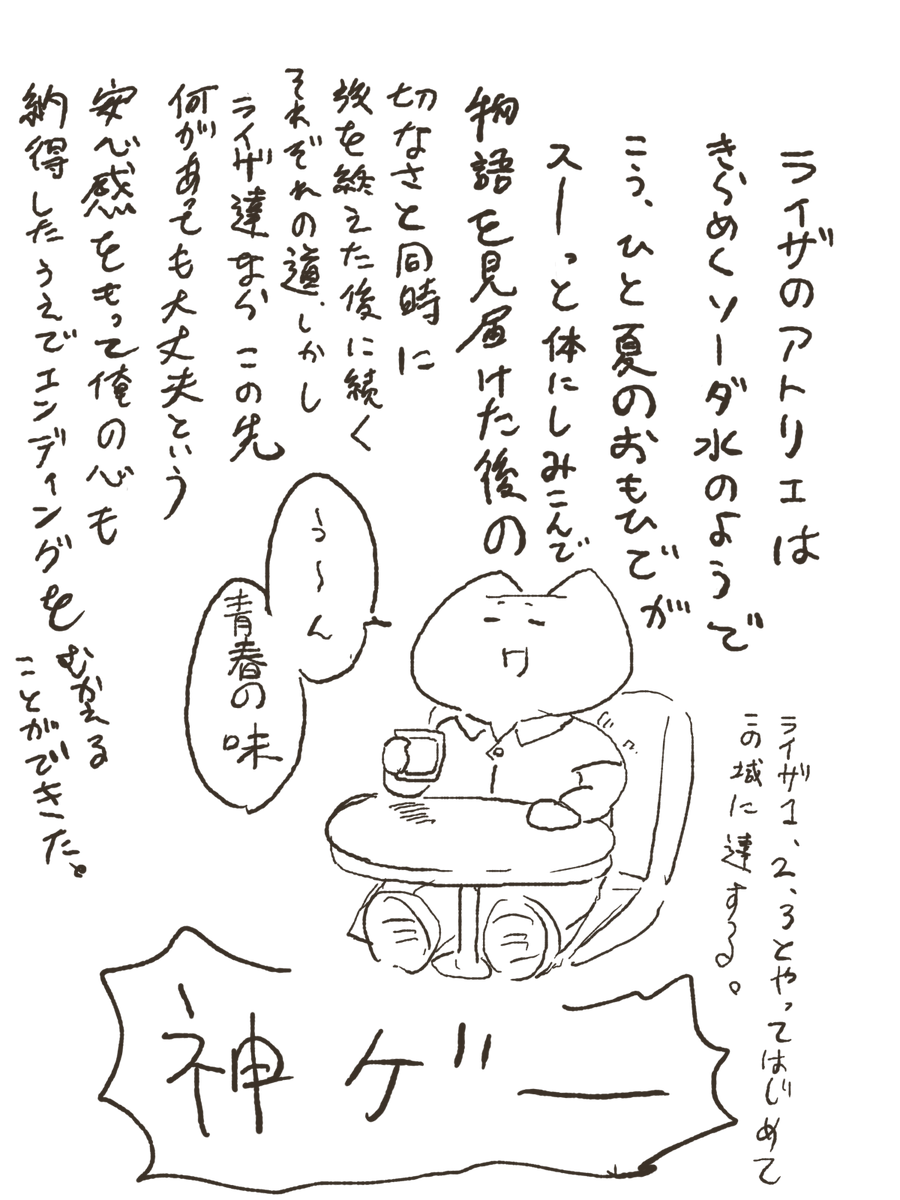 ライザのアトリエは
きらめくソーダ水のようで
こう、ひと夏のおもひでが
スーっと体にしみこんで
物語を見届けた後の
切なさと同時に
旅を終えた後に続く
それぞれの道、しかし
ライザ達なら この先
何があっても大丈夫という
安心感をもって俺の心も
納得したうえでエンディングを
むかえる
ことができた。
う~ん
青春の味
ライザ1、2、3とやってはじめて
この域に達する。
神ゲー